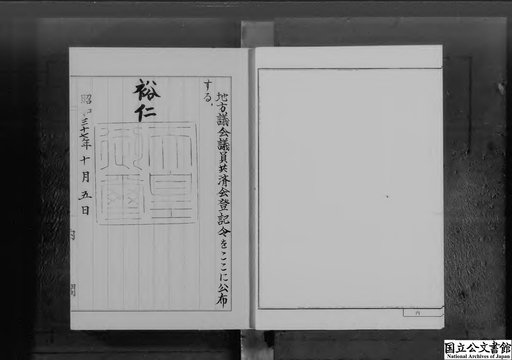 地方議会議員共済会登記令をここに公布
する。
裕仁
天皇
御璽
昭和三十七年十月五日
国立公文書館
National Archives of Japan